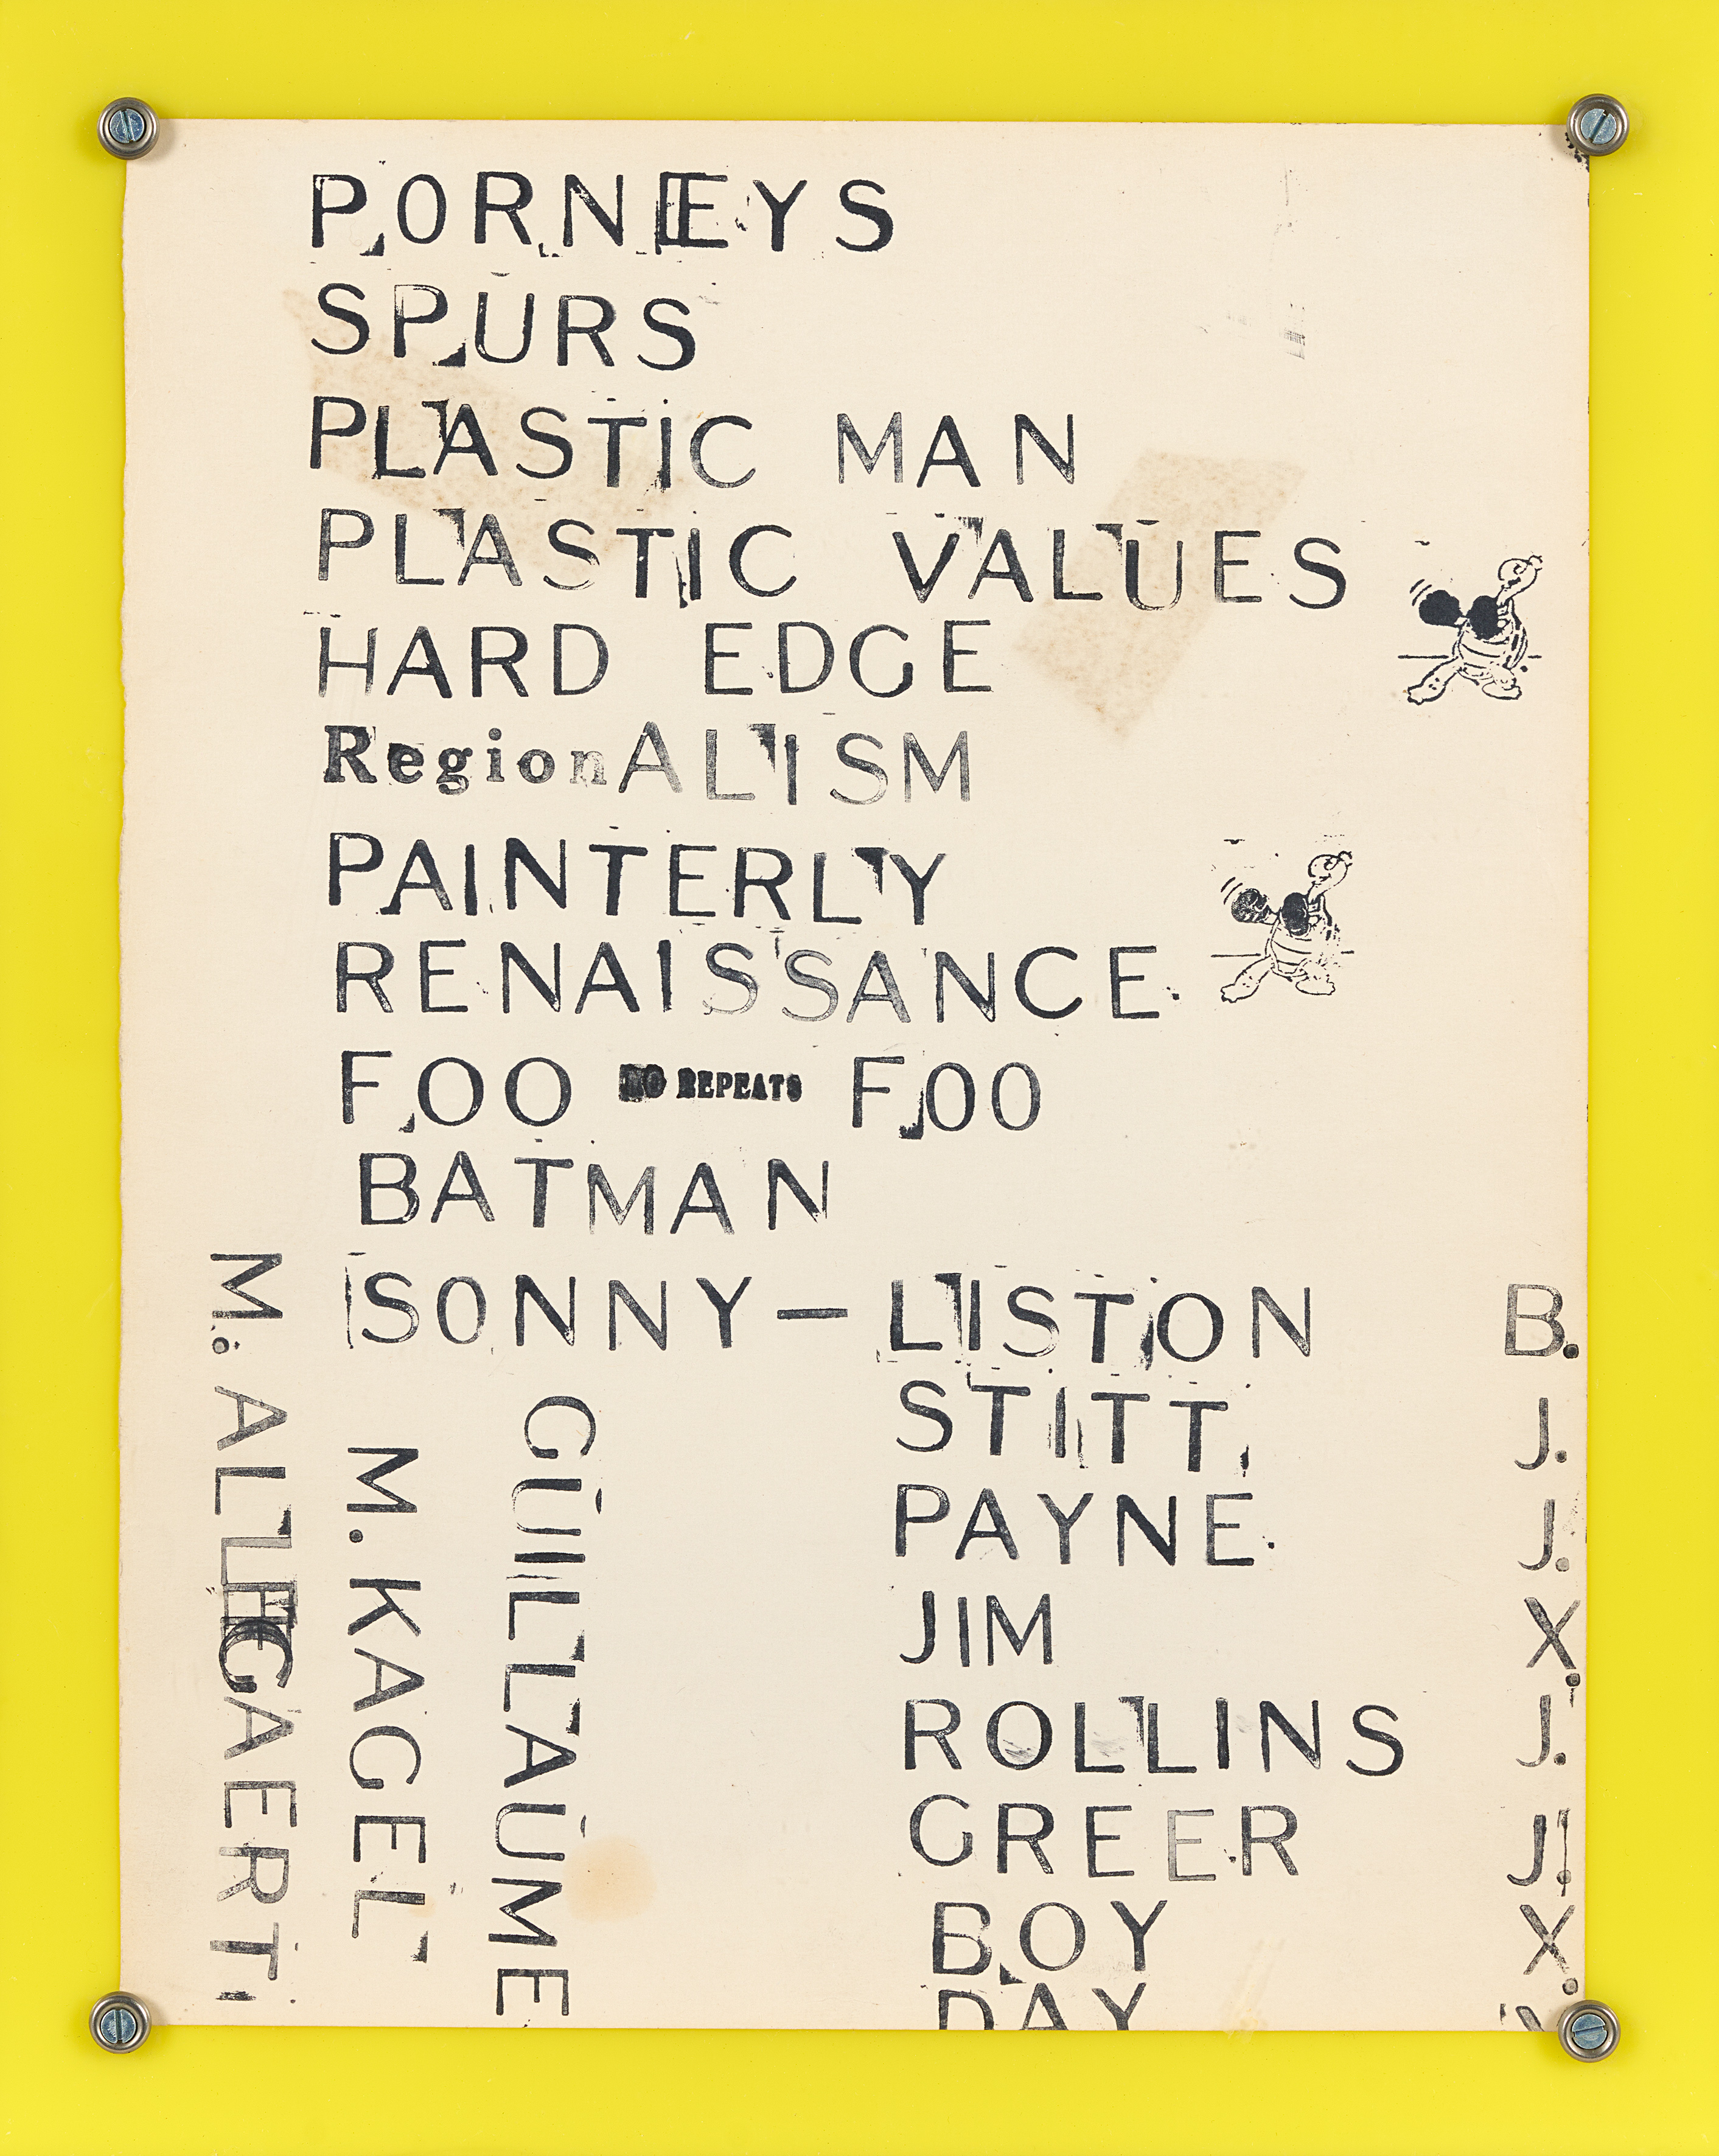 PORNEYS
SPURS
PLASTIC MAN
PLASTIC VALUES
HARD EDGE
RegionALISM
PAINTERLY
RENAISSANCE
FOO NO REPEATS FOO
BATMAN
SONNY—LISTON B.
STITT J.
PAYNE J.
JIM X.
ROLLINS J.
GREER J.
BOY X.
DAY
GUILLAUME
M. KAGEL
M.